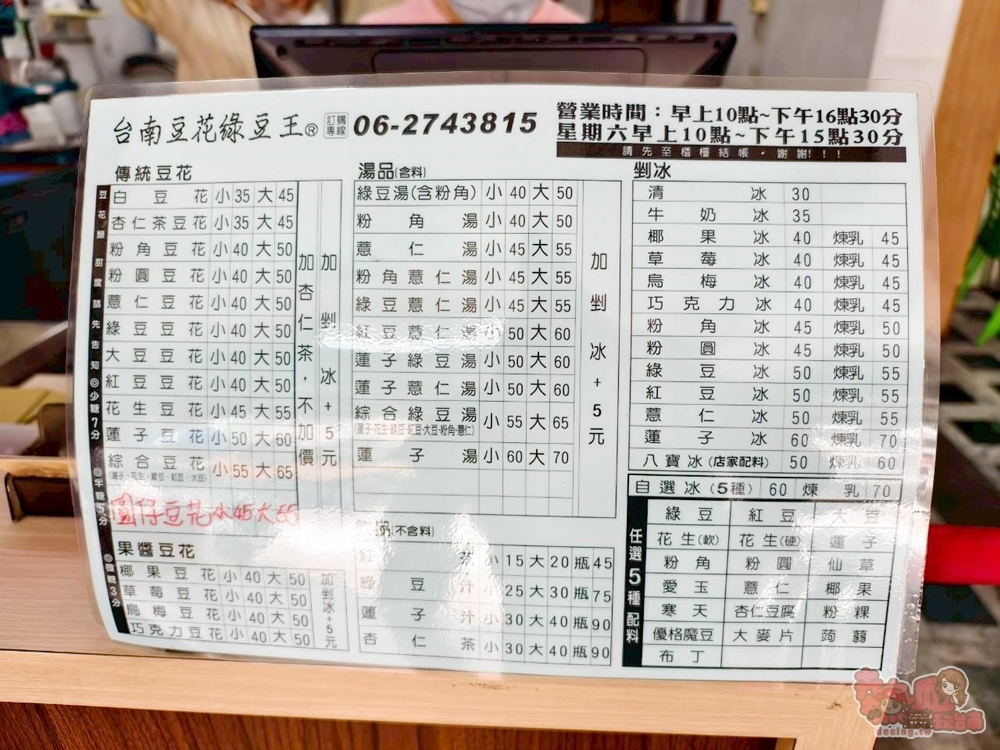 台南豆花綠豆王® 訂購專線 06-2743815
營業時間：早上10點~下午16點30分
星期六早上10點~下午15點30分
請先至櫃檯結帳，謝謝!!!
傳統豆花
豆花類甜度請先告知◎少糖7分◎半糖5分◎微糖3分
白豆花 小 35 大 45
杏仁茶豆花 小 35 大 45
粉角豆花 小 40 大 50
粉圓豆花 小 40 大 50
薏仁豆花 小 40 大 50
綠豆豆花 小 40 大 50
大豆豆花 小 40 大 50
紅豆豆花 小 40 大 50
花生豆花 小 45 大 55
蓮子豆花 小 50 大 60
綜合豆花 小 55 大 65
(蓮子、花生、綠豆、紅豆、大豆)
圓仔豆花 小45 大55
加杏仁茶，不加價
加剉冰+5元
果醬豆花
椰果豆花 小 40 大 50
草莓豆花 小 40 大 50
烏梅豆花 小 40 大 50
巧克力豆花 小 40 大 50
加剉冰+5元
湯品(含料)
綠豆湯(含粉角) 小 40 大 50
粉角湯 小 40 大 50
薏仁湯 小 45 大 55
粉角薏仁湯 小 45 大 55
綠豆薏仁湯 小 45 大 55
紅豆薏仁湯 小 50 大 60
蓮子綠豆湯 小 50 大 60
蓮子薏仁湯 小 50 大 60
綜合綠豆湯 小 55 大 65
(蓮子·花生·綠豆·紅豆·大豆·粉角·薏仁)
蓮子湯 小 60 大 70
加剉冰+5元
(不含料)
紅茶 小 15 大 20 瓶 45
綠豆汁 小 25 大 30 瓶 75
蓮子汁 小 30 大 40 瓶 90
杏仁茶 小 30 大 40 瓶 90
剉冰
清冰 30
牛奶冰 35
椰果冰 40 煉乳 45
草莓冰 40 煉乳 45
烏梅冰 40 煉乳 45
巧克力冰 40 煉乳 45
粉角冰 45 煉乳 50
粉圓冰 45 煉乳 50
綠豆冰 50 煉乳 55
紅豆冰 50 煉乳 55
薏仁冰 50 煉乳 55
蓮子冰 60 煉乳 70
八寶冰(店家配料) 50 煉乳 60
自選冰(5種) 60 煉乳 70
任選5種配料
綠豆 紅豆 大豆
花生(軟) 花生(硬) 蓮子
粉角 粉圓 仙草
愛玉 薏仁 椰果
寒天 杏仁豆腐 粉粿
優格魔豆 大麥片 蒟蒻
布丁
decing.tw